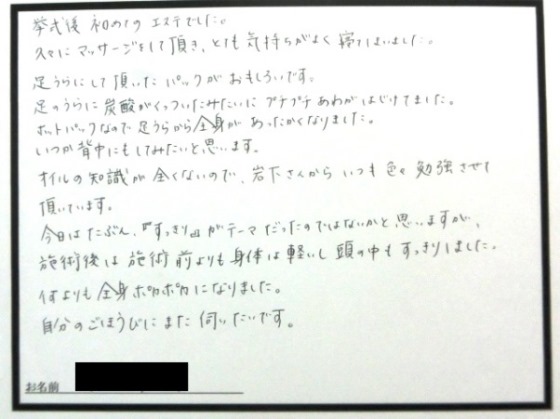 挙式後 初めての エステでした。
久々に マッサージをして頂き、とても 気持ちがよく 寝てしまいました。
足うらにして頂いた パックが おもしろいです。
足のうらに 炭酸がくっついたみたいに プチプチ あわが はじけてました。
ホットパックなので 足うらから 全身が あったかくなりました。
いつか 背中にもしてみたいと思います。
オイルの知識が 全くないので、岩下さんから いつも 色々 勉強させて
頂いています。
今日は たぶん、『すっきり』がテーマだったのではないかと思いますが、
施術後は 施術前よりも 身体は 軽いし 頭の中も すっきりしました。
何よりも 全身 ポカポカになりました。
自分のごほうびに また 伺いたいです。
お名前